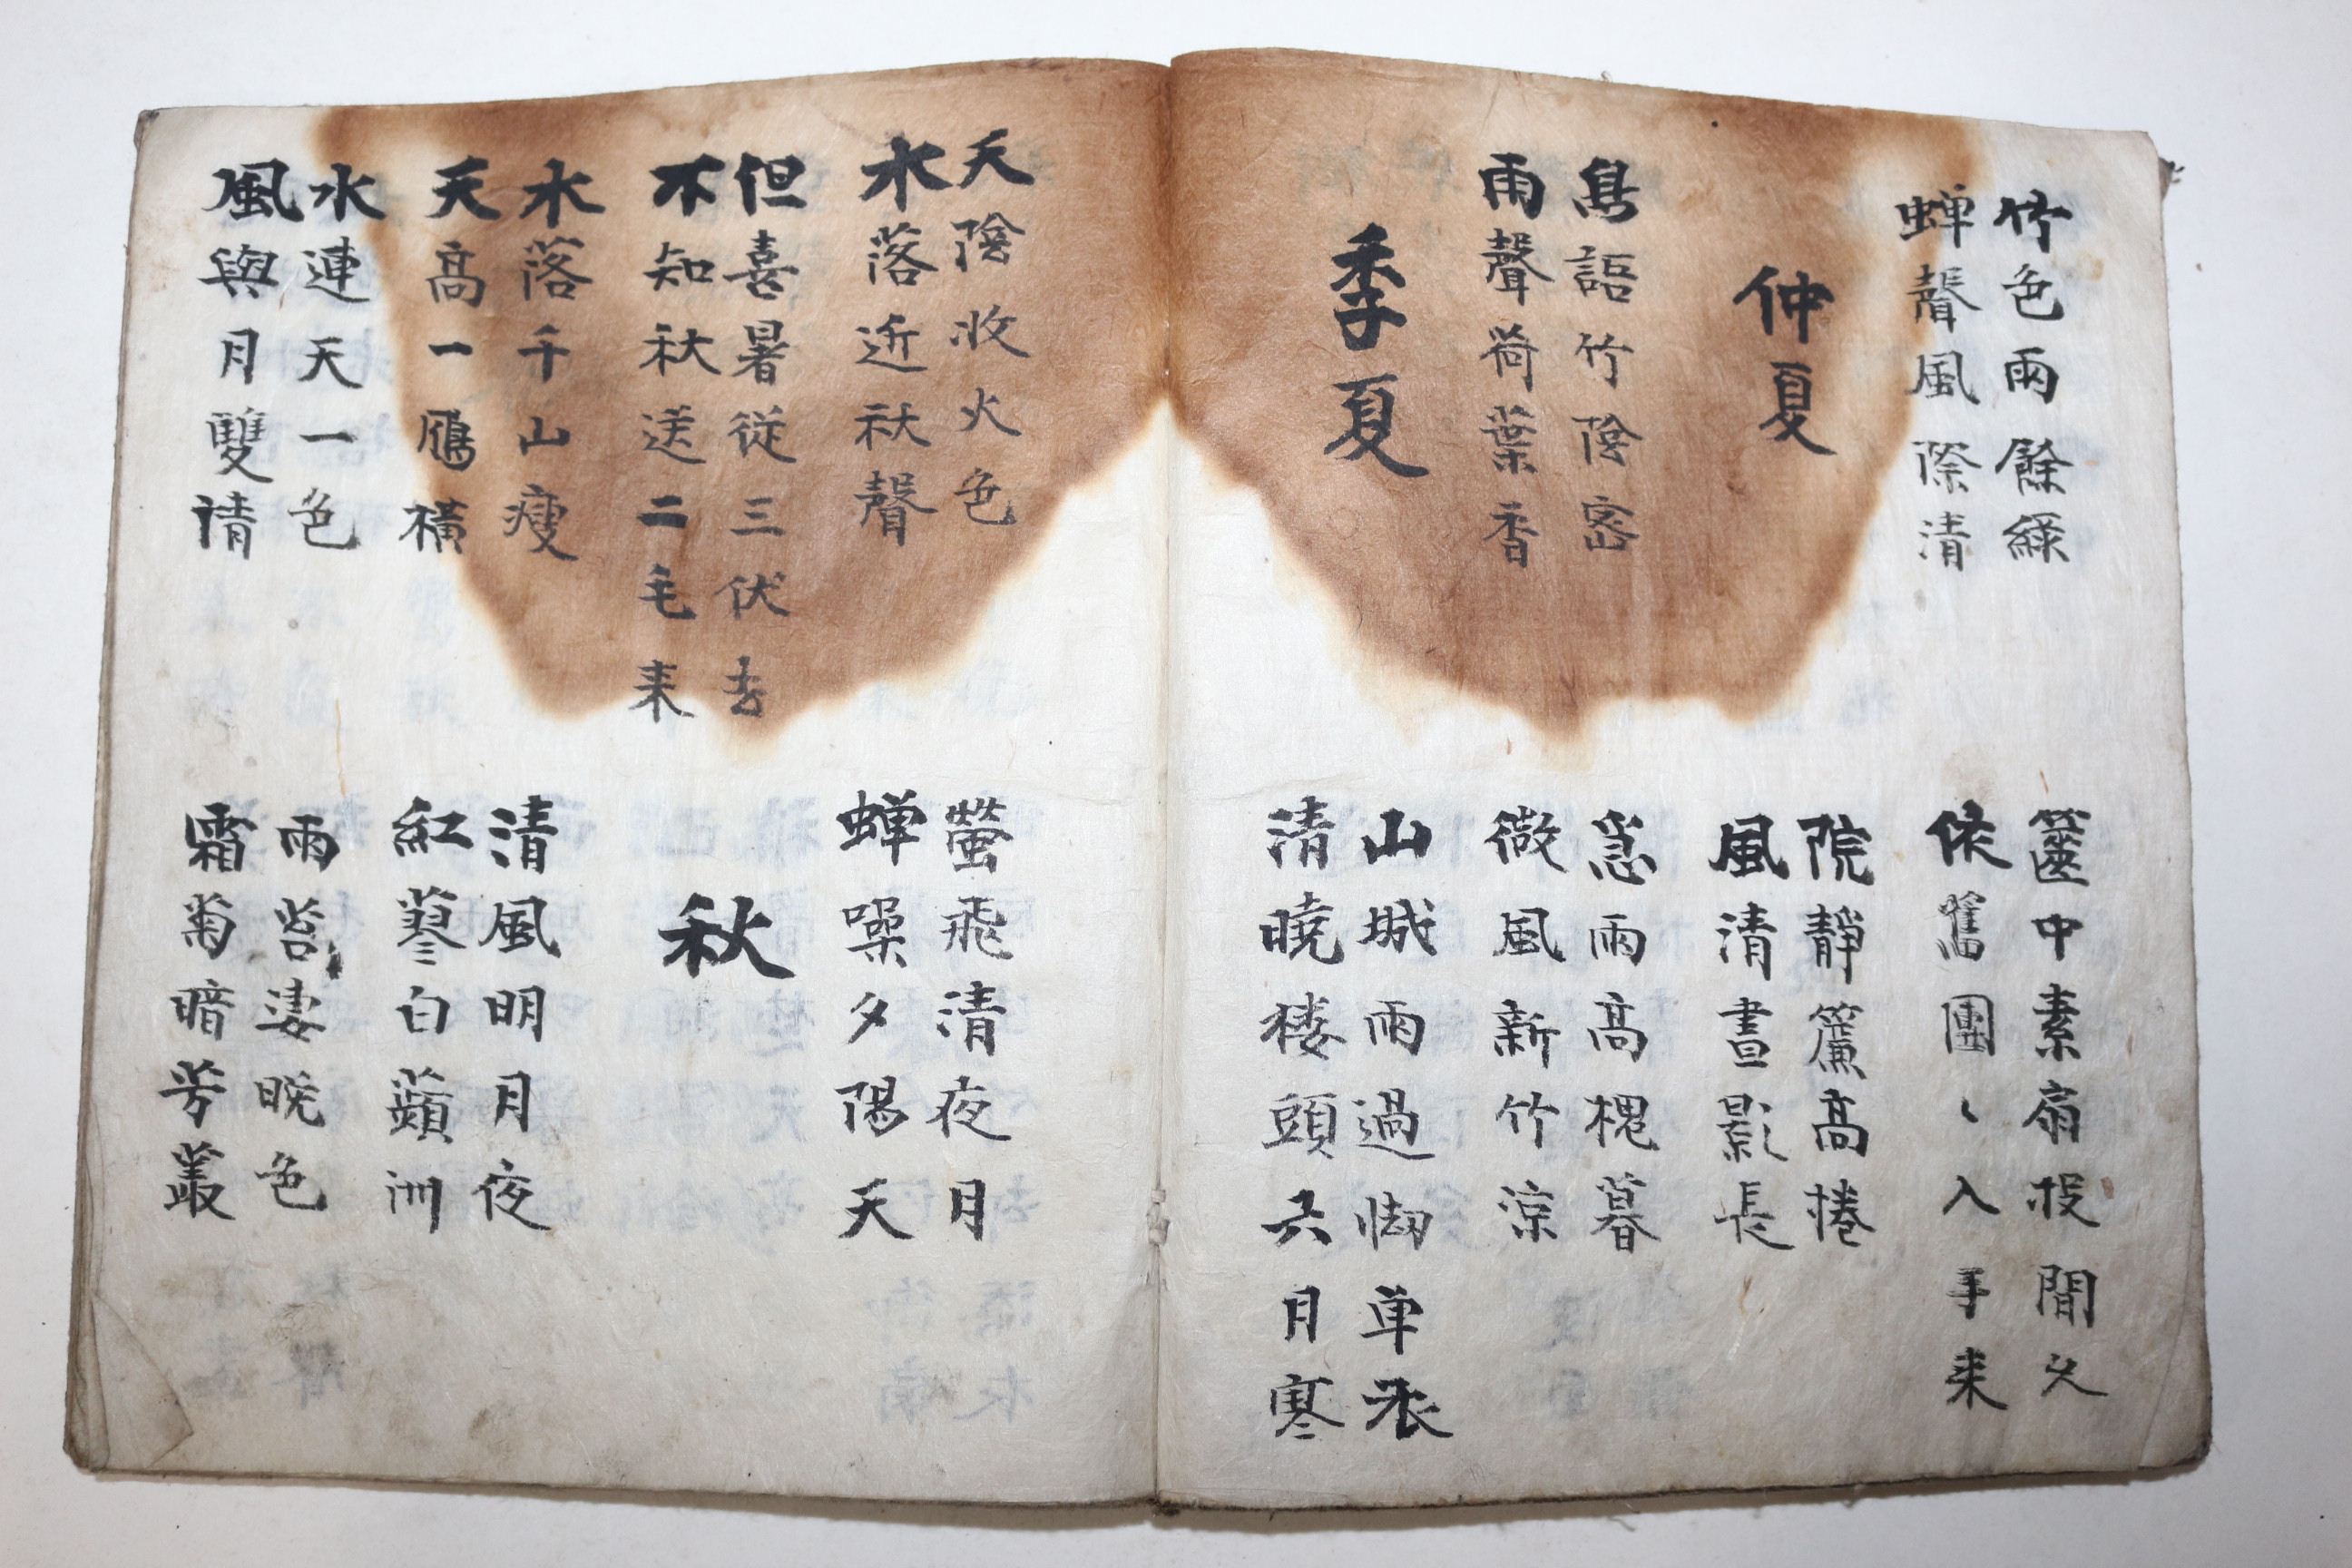 竹色雨餘綠
蟬聲風際清
篋中素扇投閒久
依舊團ヽ入手来
仲夏
院靜簾高捲
風清晝影長
鳥語竹陰密
雨聲荷葉香
急雨高槐暮
微風新竹涼
季夏
山城雨過㤼単衣
清曉楼頭六月寒
天陰收火色
水落近秋聲
螢飛清夜月
蝉噪夕陽天
但喜暑從三伏去
不知秋送二毛来
秋
水落千山瘦
天高一鴈橫
清風明月夜
紅蓼白蘋洲
水連天一色
風與月雙清
雨苔凄晚色
霜菊暗芳叢